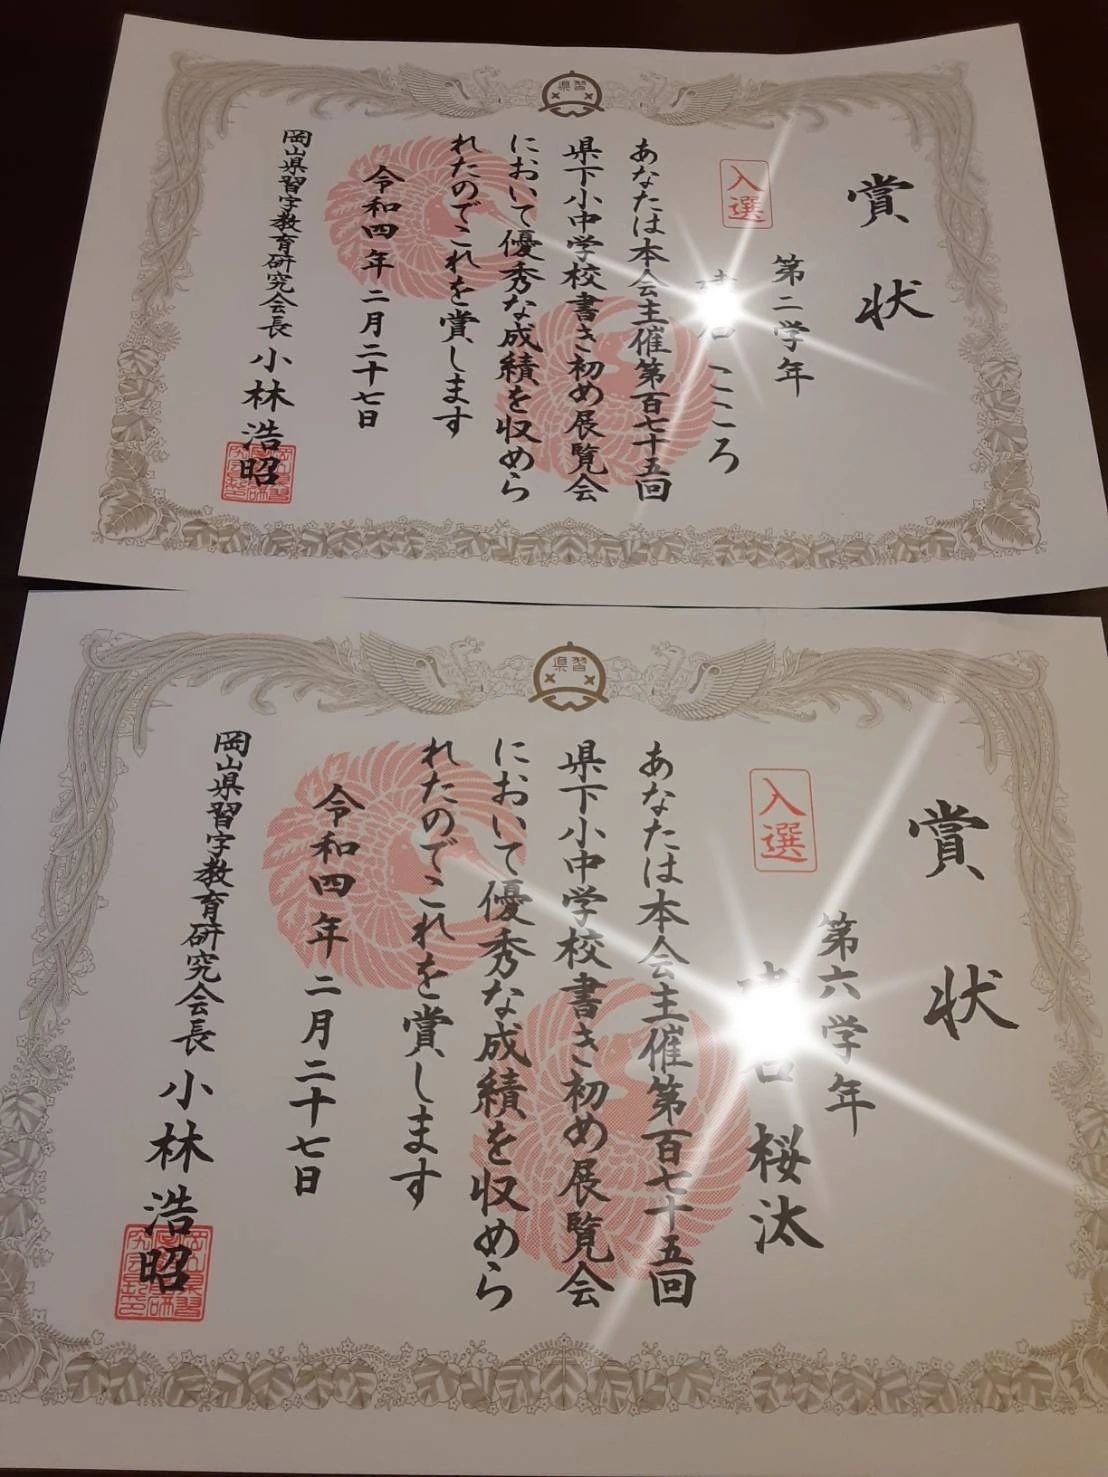 県習
賞状
入選
第二学年
こころ
あなたは本会主催第百七十五回
県下小中学校書き初め展覧会
において優秀な成績を収めら
れたのでこれを賞します
令和四年二月二十七日
岡山県習字教育研究会長 小林浩昭
県習
賞状
入選
第六学年
桜汰
あなたは本会主催第百七十五回
県下小中学校書き初め展覧会
において優秀な成績を収めら
れたのでこれを賞します
令和四年二月二十七日
岡山県習字教育研究会長 小林浩昭